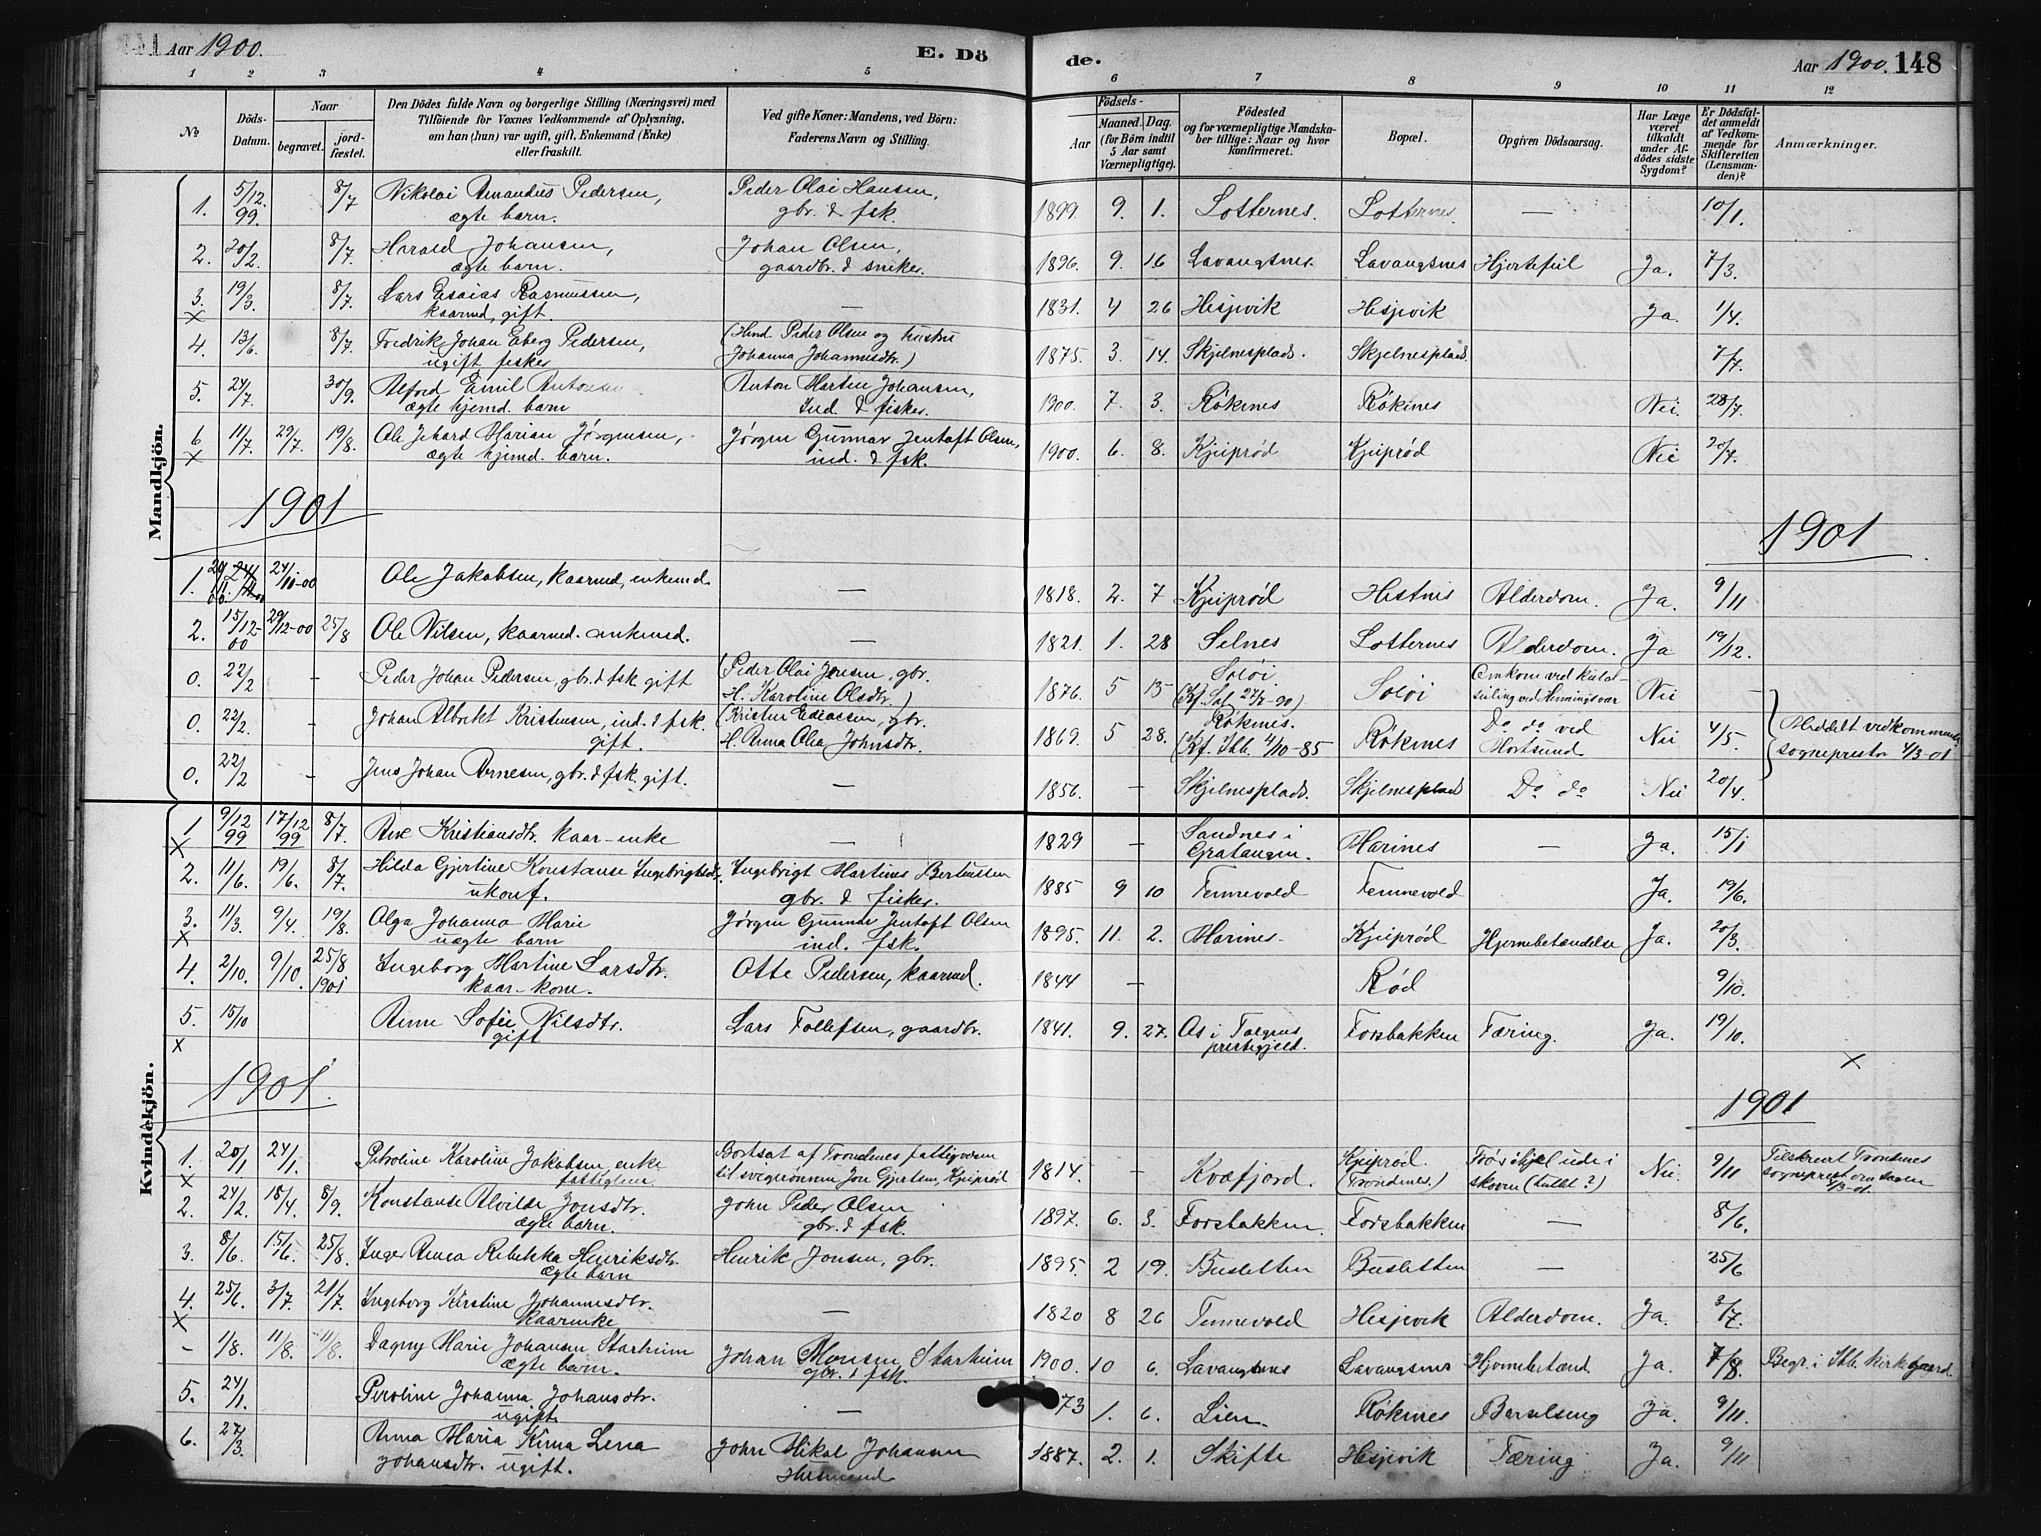 Aar 1900.
E. Dö
de.
Aar 1900. 148
1 2 3 4 5 6 7 8 9 10 11 12
No
Döds-Datum.
Naar
begravet.
jord-fæstet.
Den Dödes fulde Navn og borgerlige Stilling (Næringsvei) med
Tilföiende for Voxnes Vedkommende af Oplysning,
om han (hun) var ugift, gift, Enkemand (Enke)
eller fraskilt.
Ved gifte Koner: Mandens, ved Börn:
Faderens Navn og Stilling.
Födsels-
Aar
Maaned. Dag.
(for Börn indtil
5 Aar samt
Værnepligtige).
Födested
og for værnepligtige Mandska-
ber tillige: Naar og hvor
konfirmeret.
Bopæl.
Opgiven Dödsaarsag.
Har Læge
været
tilkaldt
under Af-
dödes sidste
Sygdom?
Er Dödsfal-
det anmeldt
af Vedkom-
mende for
Skifteretten
(Lensman-
den)?
Anmærkninger.
Mandkjön.
1. 5/12 99 8/7 Nikolai Amandus Pedersen, Peder Olai Hansen, 1899. 9. 1. Lotternes. Lotternes. — 10/1.
ægte barn. gbr. & fsk.
2. 20/2. 8/7. Harald Johansen, Johan Olsen, 1896. 9. 16 Lavangsnes. Lavangsnes Hjertefeil Ja. 7/3.
ægte barn. gaardbr. & snikr.
3. 19/3. 8/7. Lars Esaias Rasmussen, — 1831. 4 26 Hesjevik Hesjevik Ja. 1/4.
x kaarmd, gift.
4. 13/6. 8/7. Fredrik Johan Eberg Pedersen, (Husd Peder Olsen og hustru 1875. 3. 14. Skjelnesplads. Skjelnesplads. 7/7.
ugift fisker Johanna Johannesdtr.)
5. 24/7. 30/9. Alfred Emil Antonsen Anton Martin Johansen, 1900. 7. 3. Rökenes Rökenes Nei 28/7.
ægte hjemd. barn Ind. & fisker.
6 11/7. 29/7. 19/8. Ole Jehard Marian Jørgensen, Jørgen Gunnar Jentoft Olsen, 1900. 6. 8. Kjiprød Kjiprød Nei 20/7.
x ægte hjemd. barn. ind. & fsk.
1901
1901
1. 24/11-00 Ole Jakobsen, kaarmd, enkemd. — 1818. 2. 7 Kjiprød Hestnes Alderdom. Ja. 9/11
2. 15/12-00 29/12-00 25/8 Ole Nilsen, kaarmd. enkemd. — 1821. 1. 28 Selnes Lotternes Alderdom. Ja 19/12.
0. 22/2 - Peder Johan Pedersen, gbr. & fsk gift (Peder Olai Jensen, gbr. 1876. 5 15 Soløi Soløi Omkom ved kuld- Nei —
H. Karoline Olsdtr.) seiling ved Henningsvær
0. 22/2. - Johan Albrikt Kristensen, ind. & fsk. (Kristen Edeassen, gbr. 1869. 5 28. Rökenes. Rökenes Do do ved Nei 4/5.
gift. H. Anna Olea Johnsdtr. (Kf. Ibb. 4/10-85 Hortsund
Meddelt vedkommende
sogneprest 4/3-01
0. 22/2 - Jens Johan Arnesen, gbr. & fsk. gift. — 1856. — Skjelnesplads. Skjelnesplads Do do Nei 20/4.
Kvindekjön.
1 9/12 99 17/12 99 8/7. Ane Kristiansdtr. kaar-enke — 1829 — Sandnes i Harines — Ja. 15/1
x Gratangen.
2. 11/6. 19/6. 8/7. Hilda Gjertine Konstanse Ingebrigtsdtr. Ingebrigt Martines Bertinssen 1885 9 10 Tennevold Tennevold — Ja. 19/6.
ukonf. gbr. & fisker.
3. 11/3. 9/4. 19/8. Olga Johanna Marie Jørgen Gunnar Jentoft Olsen 1895. 11. 2. Harines. Kjiprød Hjernebetændelse Ja. 20/3.
x uægte barn ind. fsk.
4. 2/10. 9/10. 25/8 1901 Ingeborg Martine Larsdtr. Otte Pedersen, kaarmd. 1844 — Rød 9/10.
kaar-kone.
5. 15/10 Anne Sofie Nilsdtr. Lars Tollefsen, gaardbr. 1841. 9. 27. Os i Tolgens Forsbakken Tæring. Ja. 19/10.
x gift prestegjeld.
x
1901.
1901
1. 20/1 24/1. Petroline Karoline Jakobsen, enke Bortsat af Trondenes fattigvæsen 1814. — Kvæfjord. Kjiprød. Frøs ihjel ude i Nei 9/11 Tilskrevet Trondenes
x fattiglem til svigersønnen Jon Gjertsen, Kjiprød (Trondenes.) skoven sogneprest om sagen
2. 24/2. 18/4. 8/9. Konstanse Alvilde Jonsdtr. John Peder Olsen 1897. 6. 3. Forsbakken. Forsbakken — 8/6.
ægte barn. gbr. & fsk.
3. 8/6. 15/6. 25/8. Inger Anna Rebekka Henriksdtr. Henrik Jonsen, gbr. 1895. 2 19. Busletten Busletten — 25/6
ægte barn
4. 25/6. 3/7. 21/7. Ingeborg Kirstine Johannesdtr. — 1820 8 26 Tennevold Hesjevik Alderdom. Ja 3/7.
x kaarenke
- 1/8. 11/8. 11/8. Dagny Marie Johansen Starheim Johan Monsen Starheim 1900. 10 6. Lavangsnes Lavangsnes Hjernebetænd. Ja. 7/8. Begr. i Ibb. kirkegaard.
ægte barn. gbr. & fsk.
5. 24/1. Peroline Johanna Johansdtr. — 73 1. 6. Lien. Rökenes Barselseng Ja. 9/11.
ugift.
6. 27/3. Anna Maria Kirna Lena John Mikal Johansen 1887. 2. 1. Skifte Hesjevik Tæring Ja. 9/11
Johansdtr. ugift. Husmand